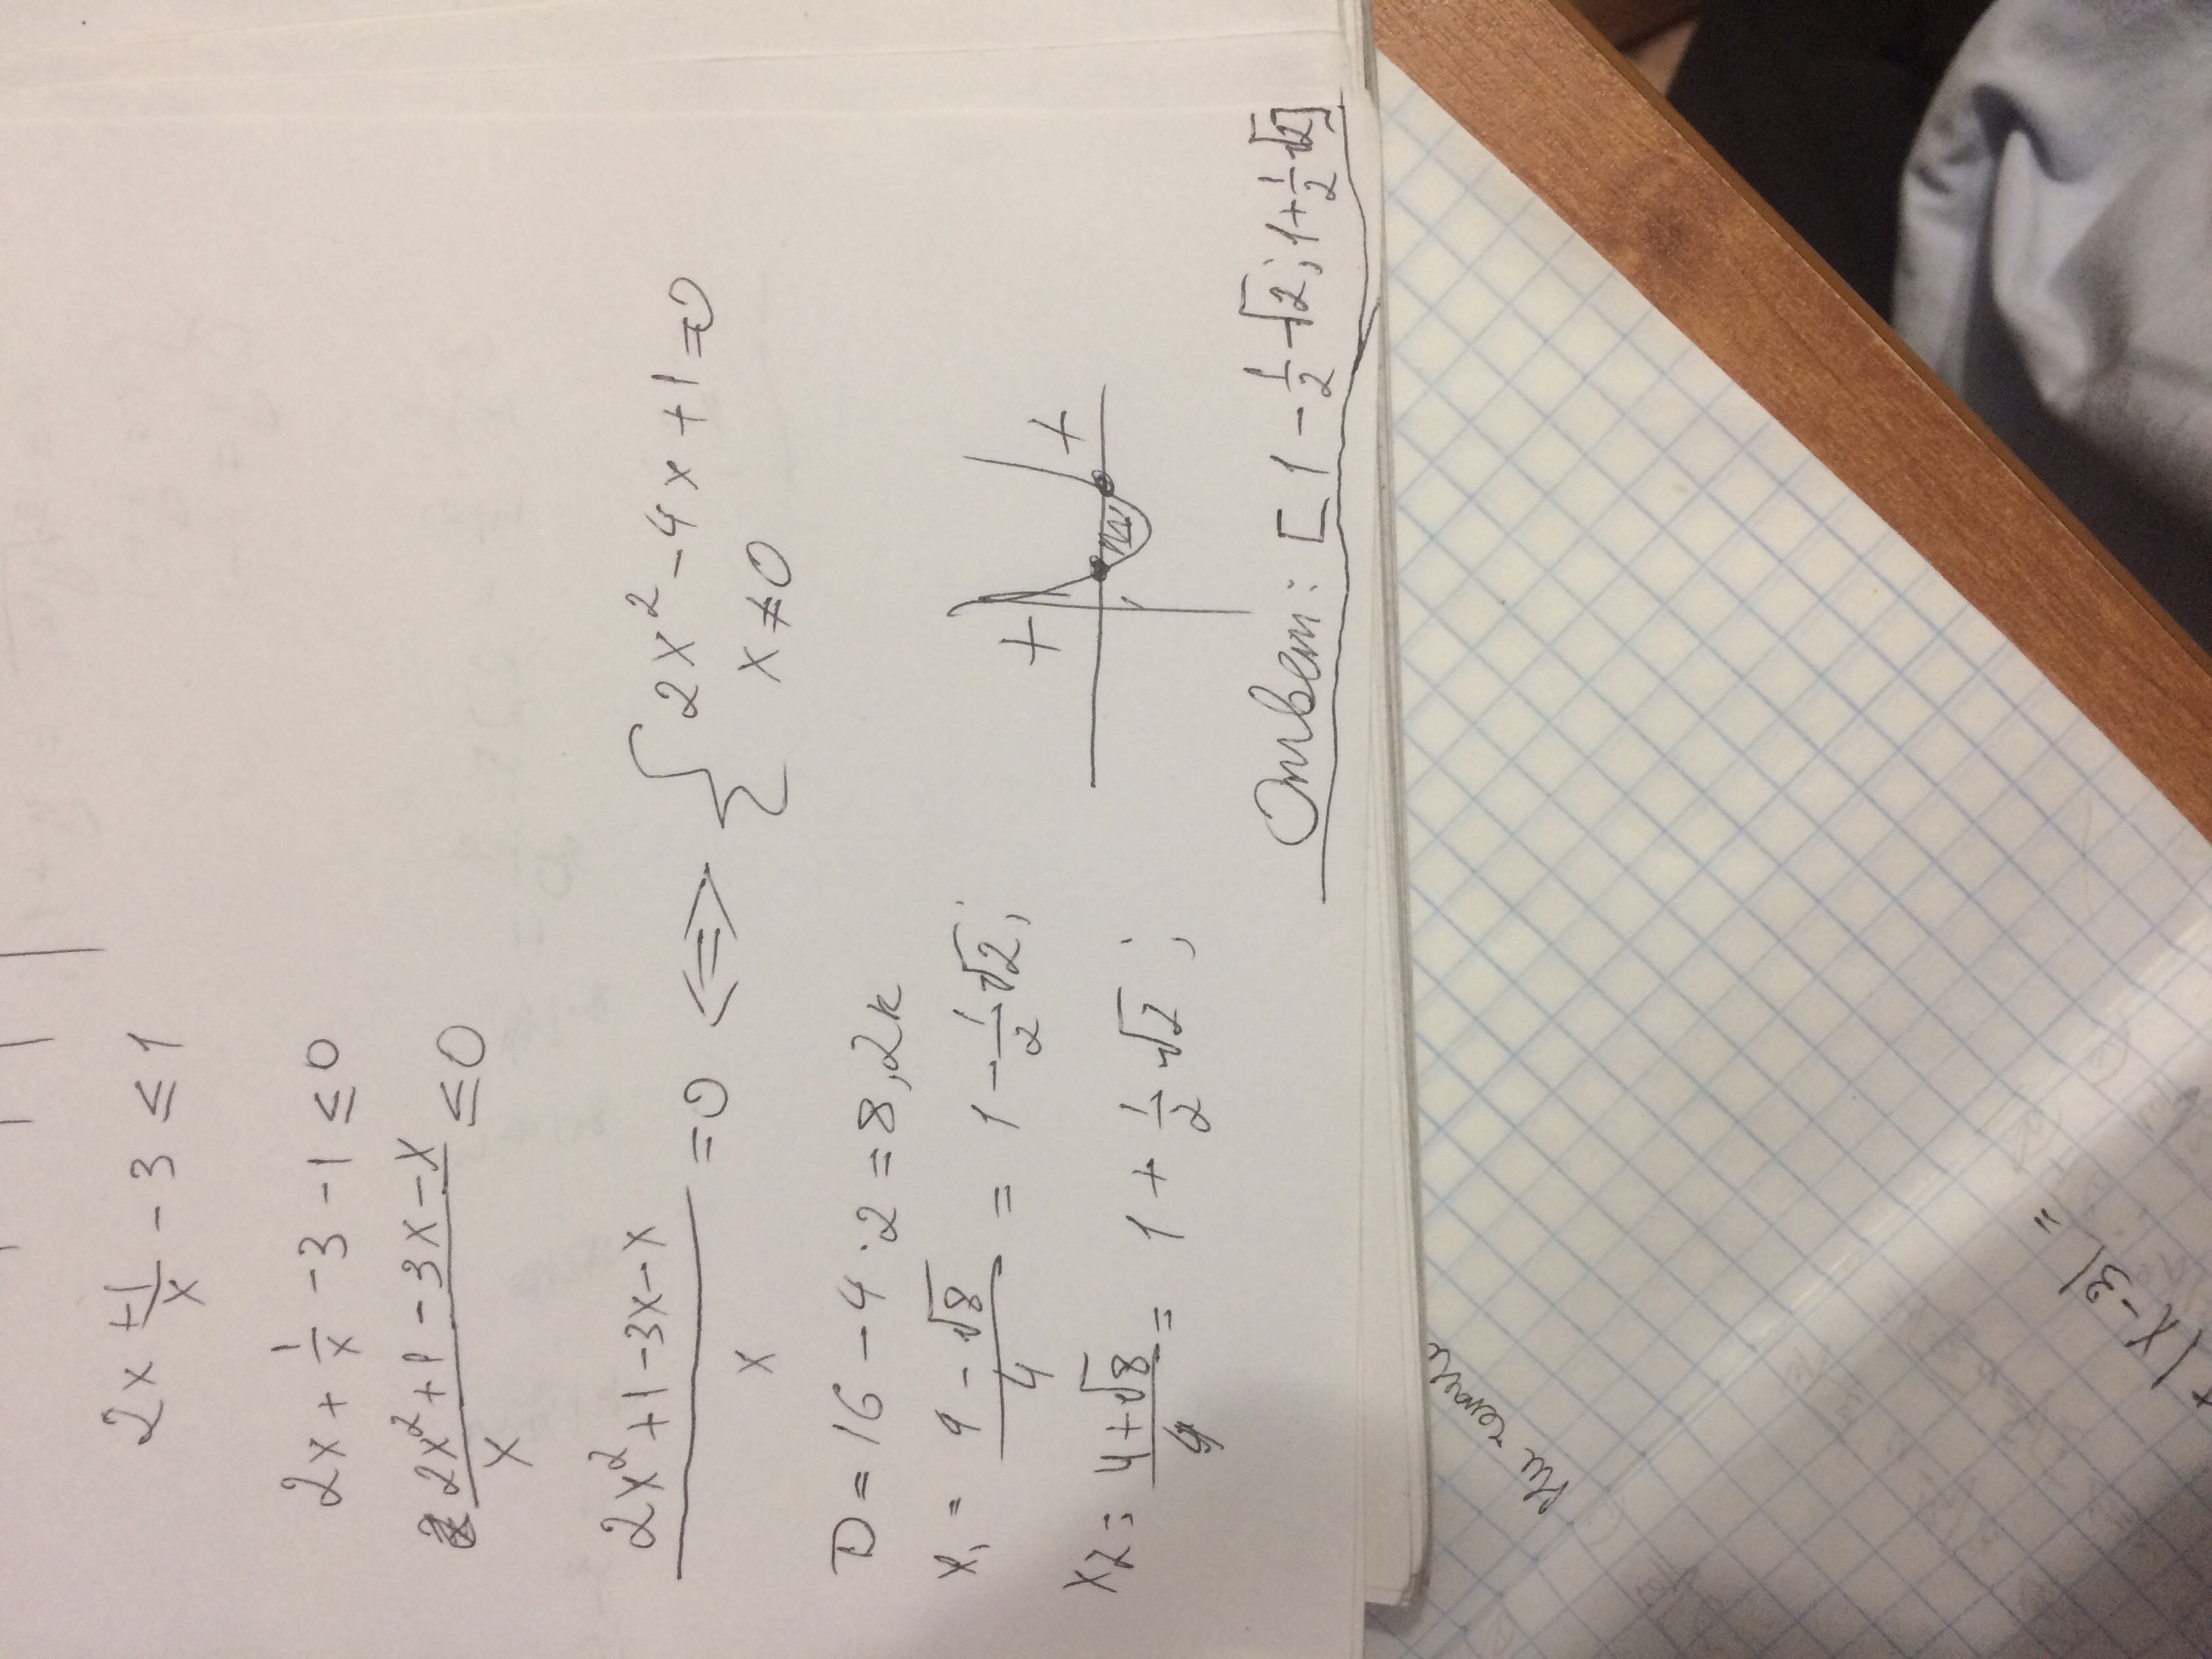 2x + 1/x - 3 ≤ 1
2x + 1/x - 3 - 1 ≤ 0
(2x² + 1 - 3x - x)/x ≤ 0
(2x² + 1 - 3x - x)/x = 0 <=> { 2x² - 4x + 1 = 0
x ≠ 0
D = 16 - 4·2 = 8, 2k
x₁ = (4 - √8)/4 = 1 - 1/2 √2;
x₂ = (4 + √8)/4 = 1 + 1/2 √2;
+ +
Ответ: [1 - 1/2 √2; 1 + 1/2 √2]
+ |x - 3| =